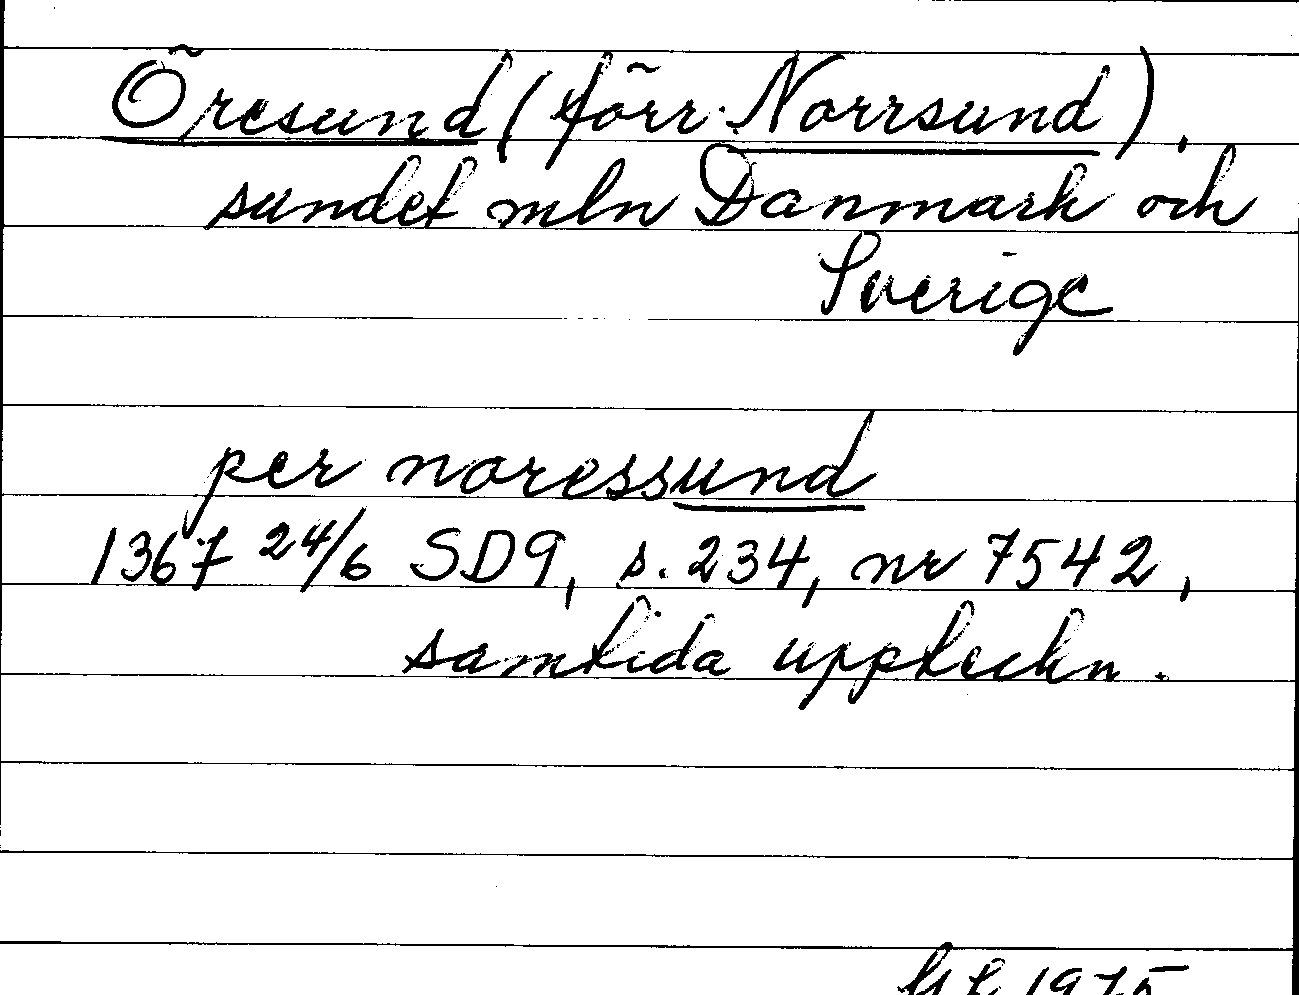 Öresund (förr Norrsund),
sundet mln Danmark och
Sverige
per noressund
1367 24/6 SD9, s. 234, nr 7542,
samtida uppteckn.
1975